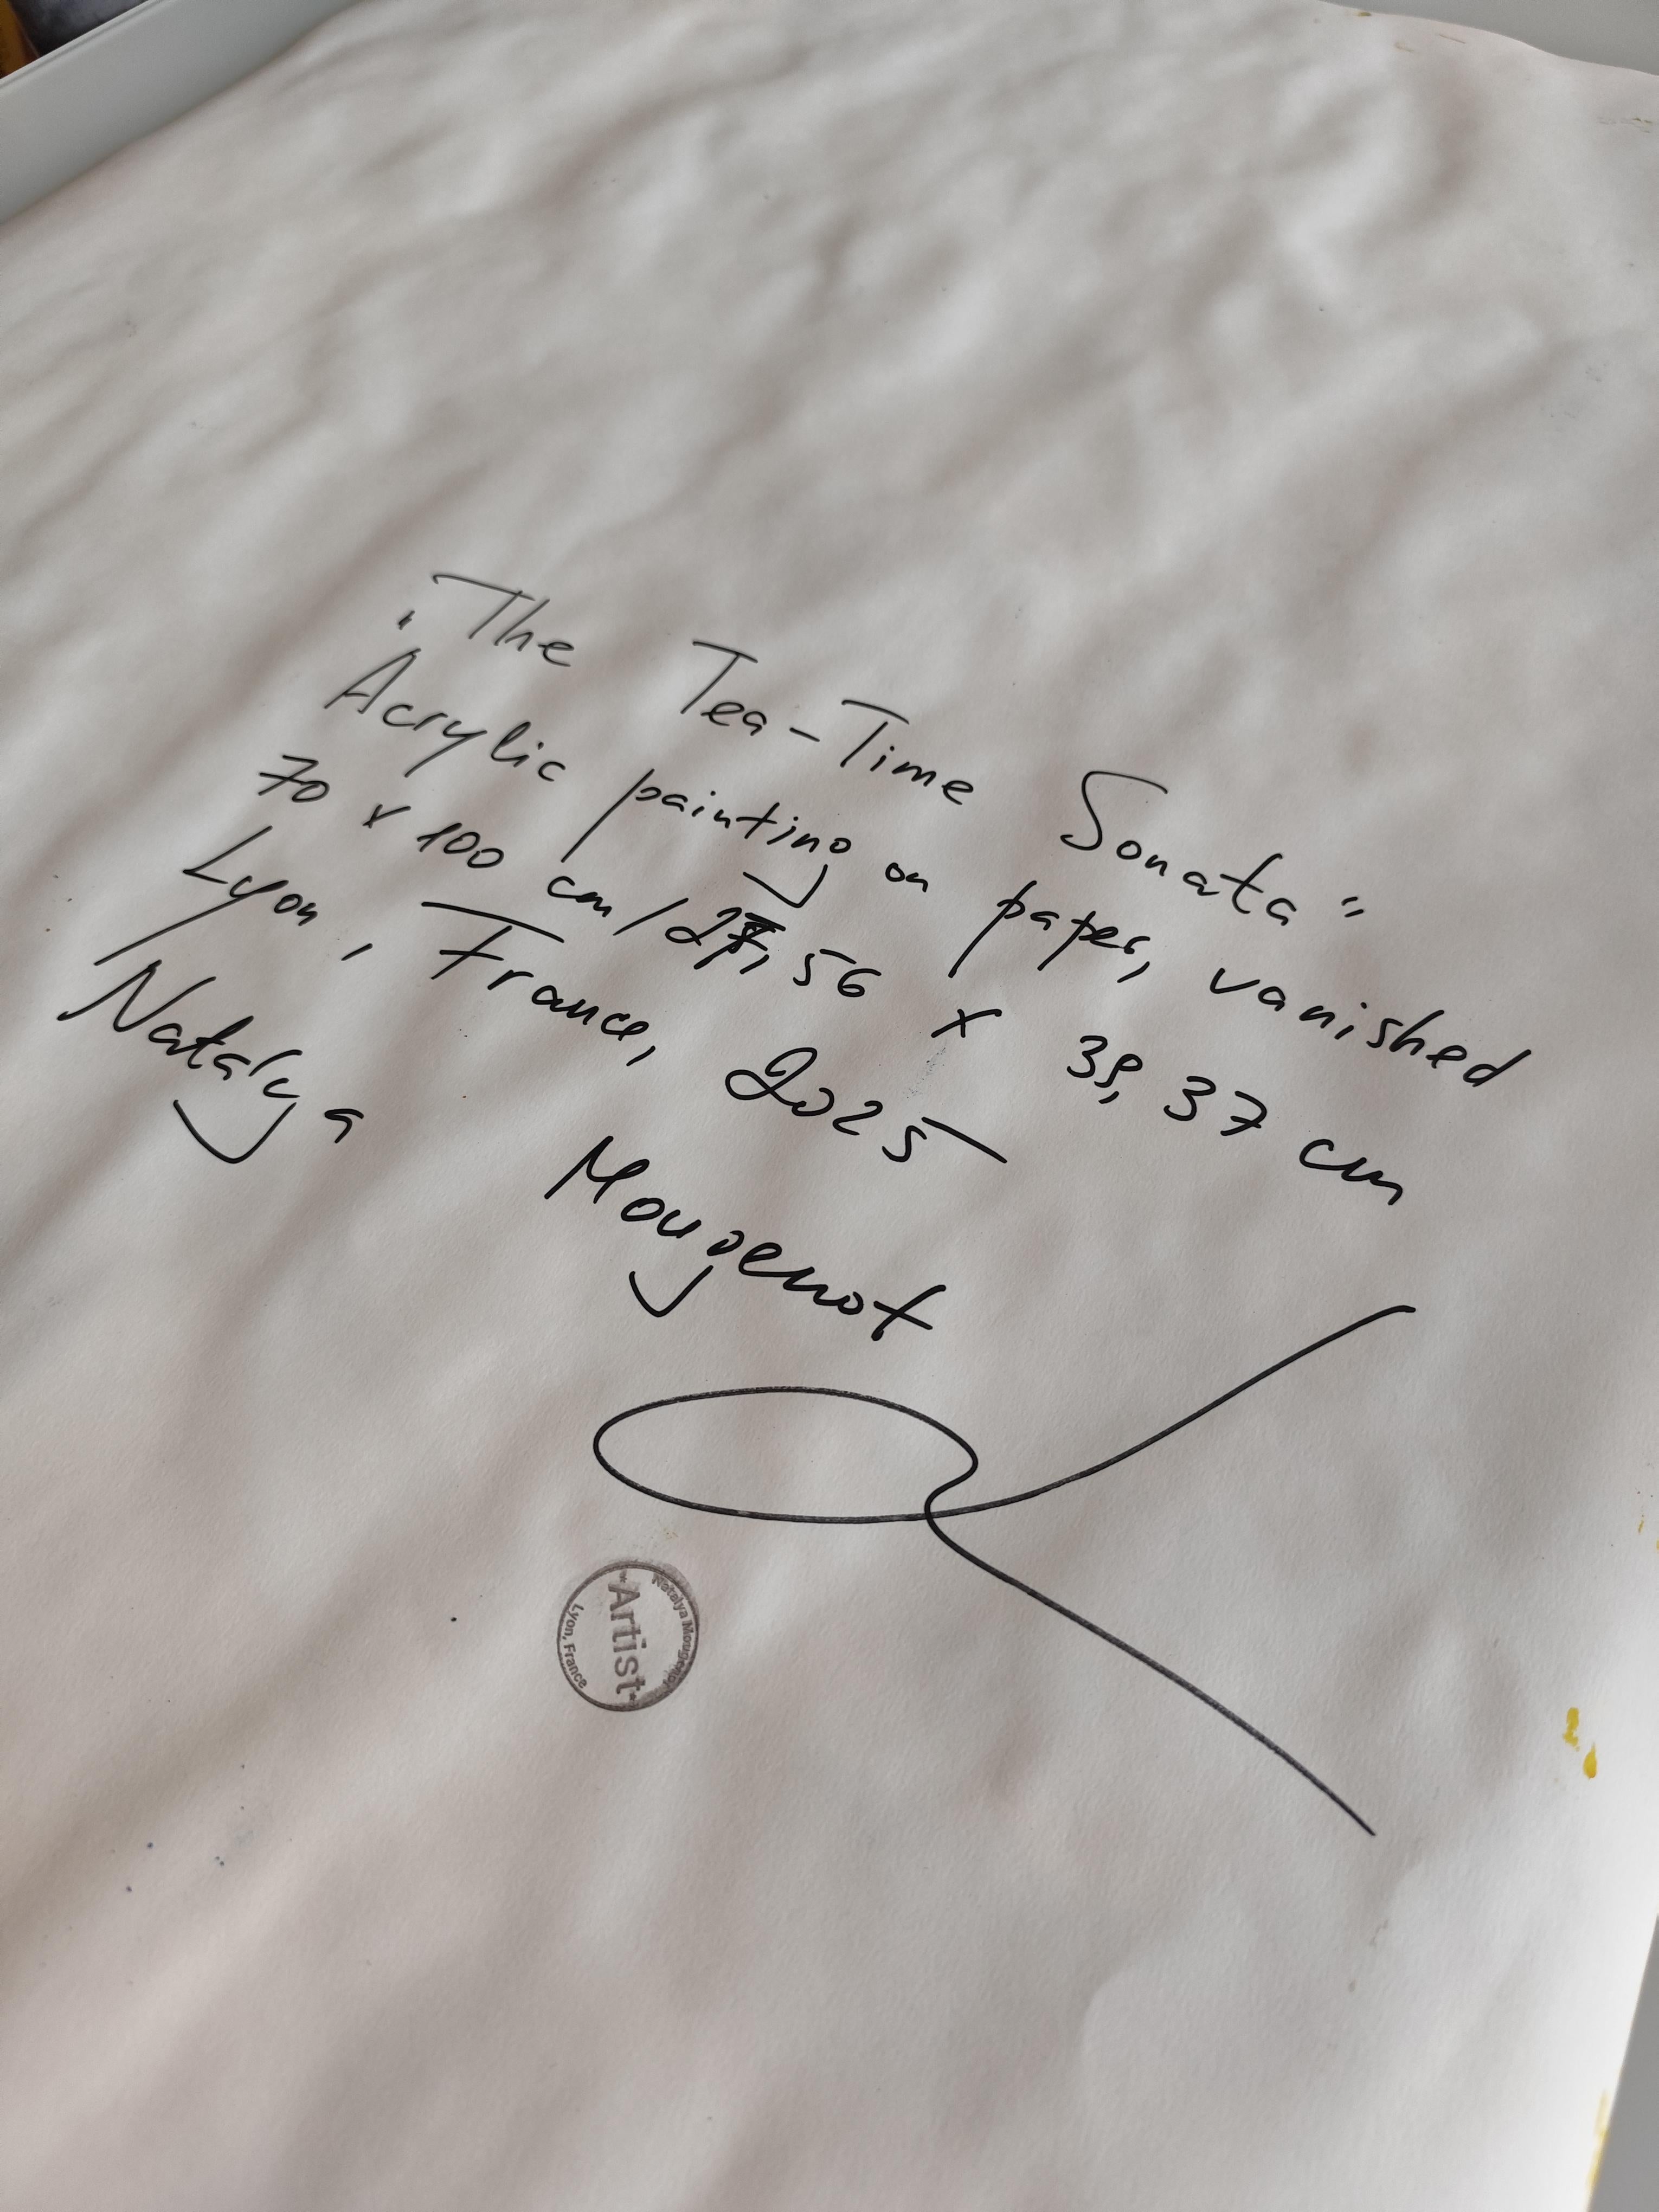 "The Tea-Time Sonata"
Acrylic painting on paper, vanished
70 x 100 cm / 27,56 x 39,37 cm
Lyon, France, 2025
Natalya Mougenot
Natalya Mougenot
*Artist*
Lyon, France